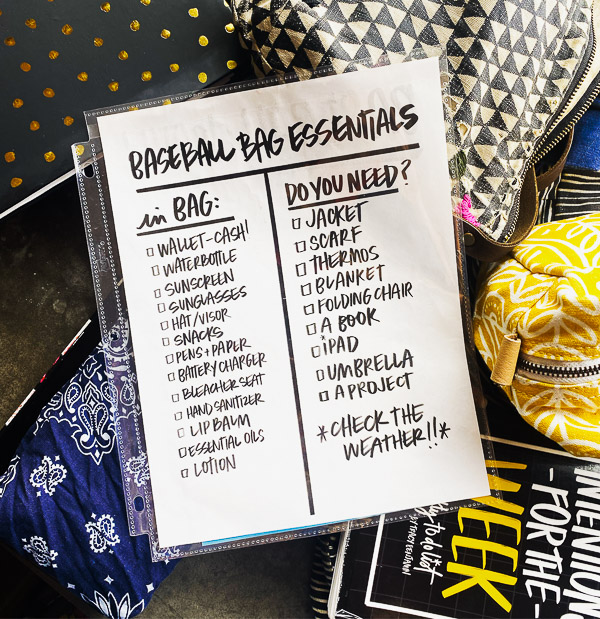 BASEBALL BAG ESSENTIALS
in BAG:
WALLET-CASH!
WATERBOTTLE
SUNSCREEN
SUNGLASSES
HAT/VISOR
SNACKS
PENS + PAPER
BATTERY CHARGER
BLEACHER SEAT
HAND SANITIZER
LIP BALM
ESSENTIAL OILS
LOTION
DO YOU NEED?
JACKET
SCARF
THERMOS
BLANKET
FOLDING CHAIR
A BOOK
IPAD
UMBRELLA
A PROJECT
*CHECK THE
WEATHER!!*
-FOR THE-
WEEK
to do list